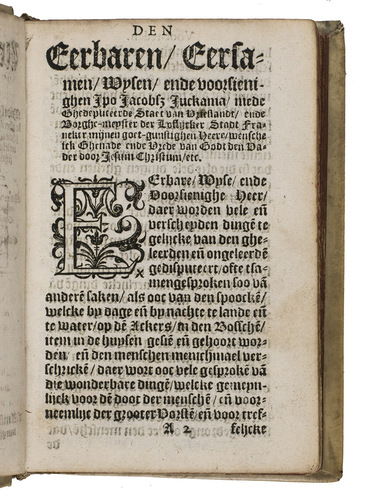 DEN
Eerbaren/ Eersa-
men/ Wysen/ ende voorsieni-
ghen Ipo Jacobsz Juckama/ mede
Ghedeputeerde Staet van Vrieslandt/ ende
Borghe-meyster der Loflijcker Stadt Fra-
neker mijnen goet-gunstighen Heere/ wensche
ick Ghenade ende Vrede van Godt den Va-
der door Jesum Christum/ etc.
EErbare/ Wyse/ ende
Voorsienighe Heer/
daer worden vele eñ
verscheyden dingē te
gelijcke van den ghe-
leerden eñ ongeleerdē
gedisputeert/ ofte tsa-
mengesproken soo vā
anderē saken/ als ooc van den spoockē/
welcke by dage eñ by nachte te lande eñ
te water/ op dē Ackers/ in den Bosschē/
item in de huysen gesiē eñ gehoort wor-
den eñ den menschen menichmael ver-
schrickē/ daer wort ooc vele gesprokē vā
die wonderbare dingē/ welcke gemeyn-
lijck voor dē doot der menschē/ eñ voor-
neemlijc der grooter Vorstē/ eñ voor tref-
A 2 felijcke